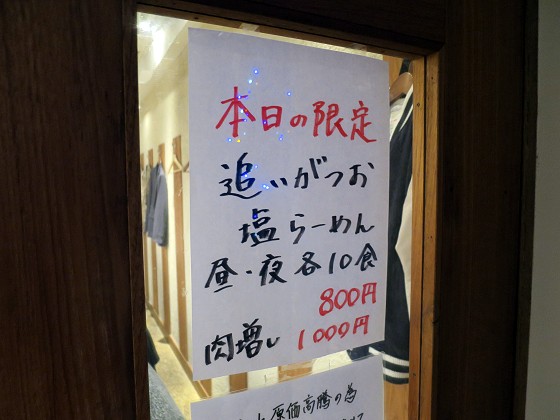 本日の限定
追いがつお
塩らーめん
昼・夜各10食
800円
肉増し 1000円
原価高騰の為